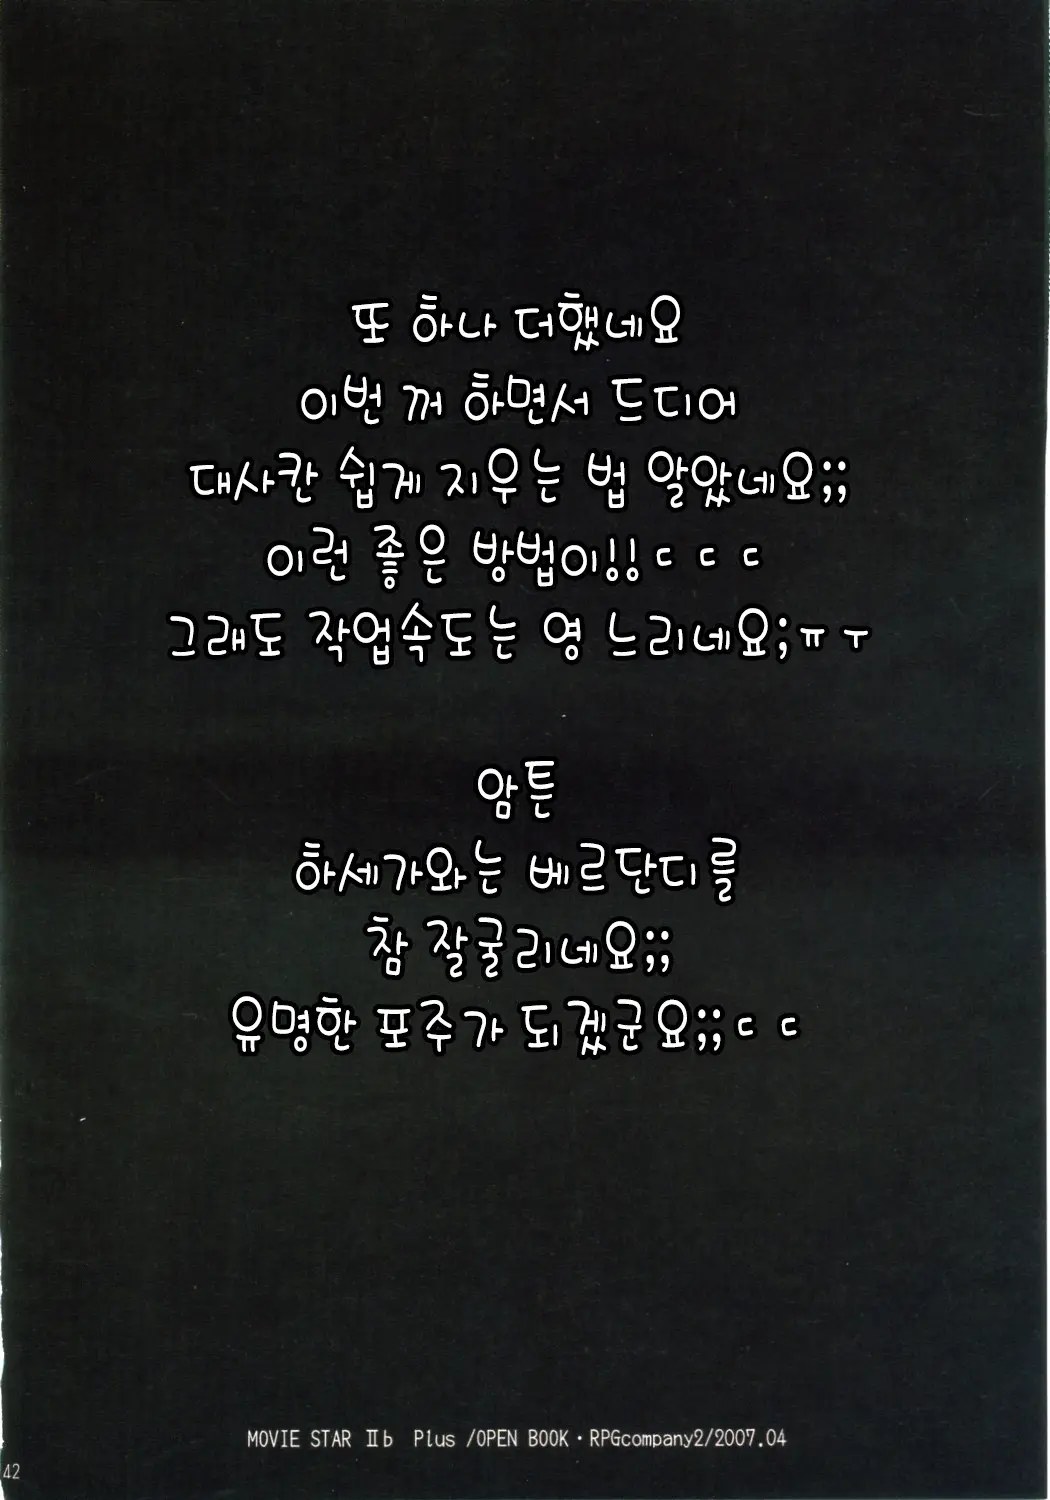 또 하나 더했네요
이번 꺼 하면서 드디어
대사칸 쉽게 지우는 법 알았네요;;
이런 좋은 방법이!!ㄷㄷㄷ
그래도 작업속도는 영 느리네요;ㅠㅜ
암튼
하세가와는 베르단디를
참 잘굴리네요;;
유명한 포주가 되겠군요;;ㄷㄷ
MOVIE STAR Ⅱb Plus /OPEN BOOK・RPGcompany2/2007.04
42